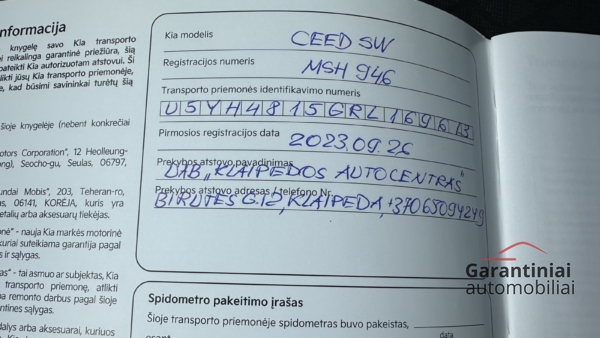 nformacija
knygelę savo Kia transporto
reikalinga garantinė priežiūra, šią
pateikti Kia autorizuotam atstovui. Ši
likti jūsų Kia transporto priemonėje,
kad būsimi savininkai turėtų šią
šioje knygelėje (nebent konkrečiai
otors Corporation", 12 Heolleung-
ong), Seocho-gu, Seulas, 06797,
undai Mobis", 203, Teheran-ro,
as, 06141, KORĖJA, kuris yra
etalių arba aksesuarų tiekėjas.
nė" - nauja Kia markės motorinė
kuriai suteikiama garantija pagal
s ir sąlygas.
as" - tai asmuo ar subjektas, Kia
transporto priemonę, atlikti
ba remonto darbus pagal šioje
antines sąlygas.
dalys arba aksesuarai, kuriuos
Kia modelis CEED SW
Registracijos numeris MSH 946
Transporto priemonės identifikavimo numeris
U5YH4815GRL169613
Pirmosios registracijos data 2023.09.26
Prekybos atstovo pavadinimas
UAB „KLAIPĖDOS AUTOCENTRAS"
Prekybos atstovo adresas / telefono Nr.
BIRUTĖS G.12, KLAIPĖDA, +37065094249
Spidometro pakeitimo įrašas
Šioje transporto priemonėje spidometras buvo pakeistas,
data
Garantiniai
automobiliai